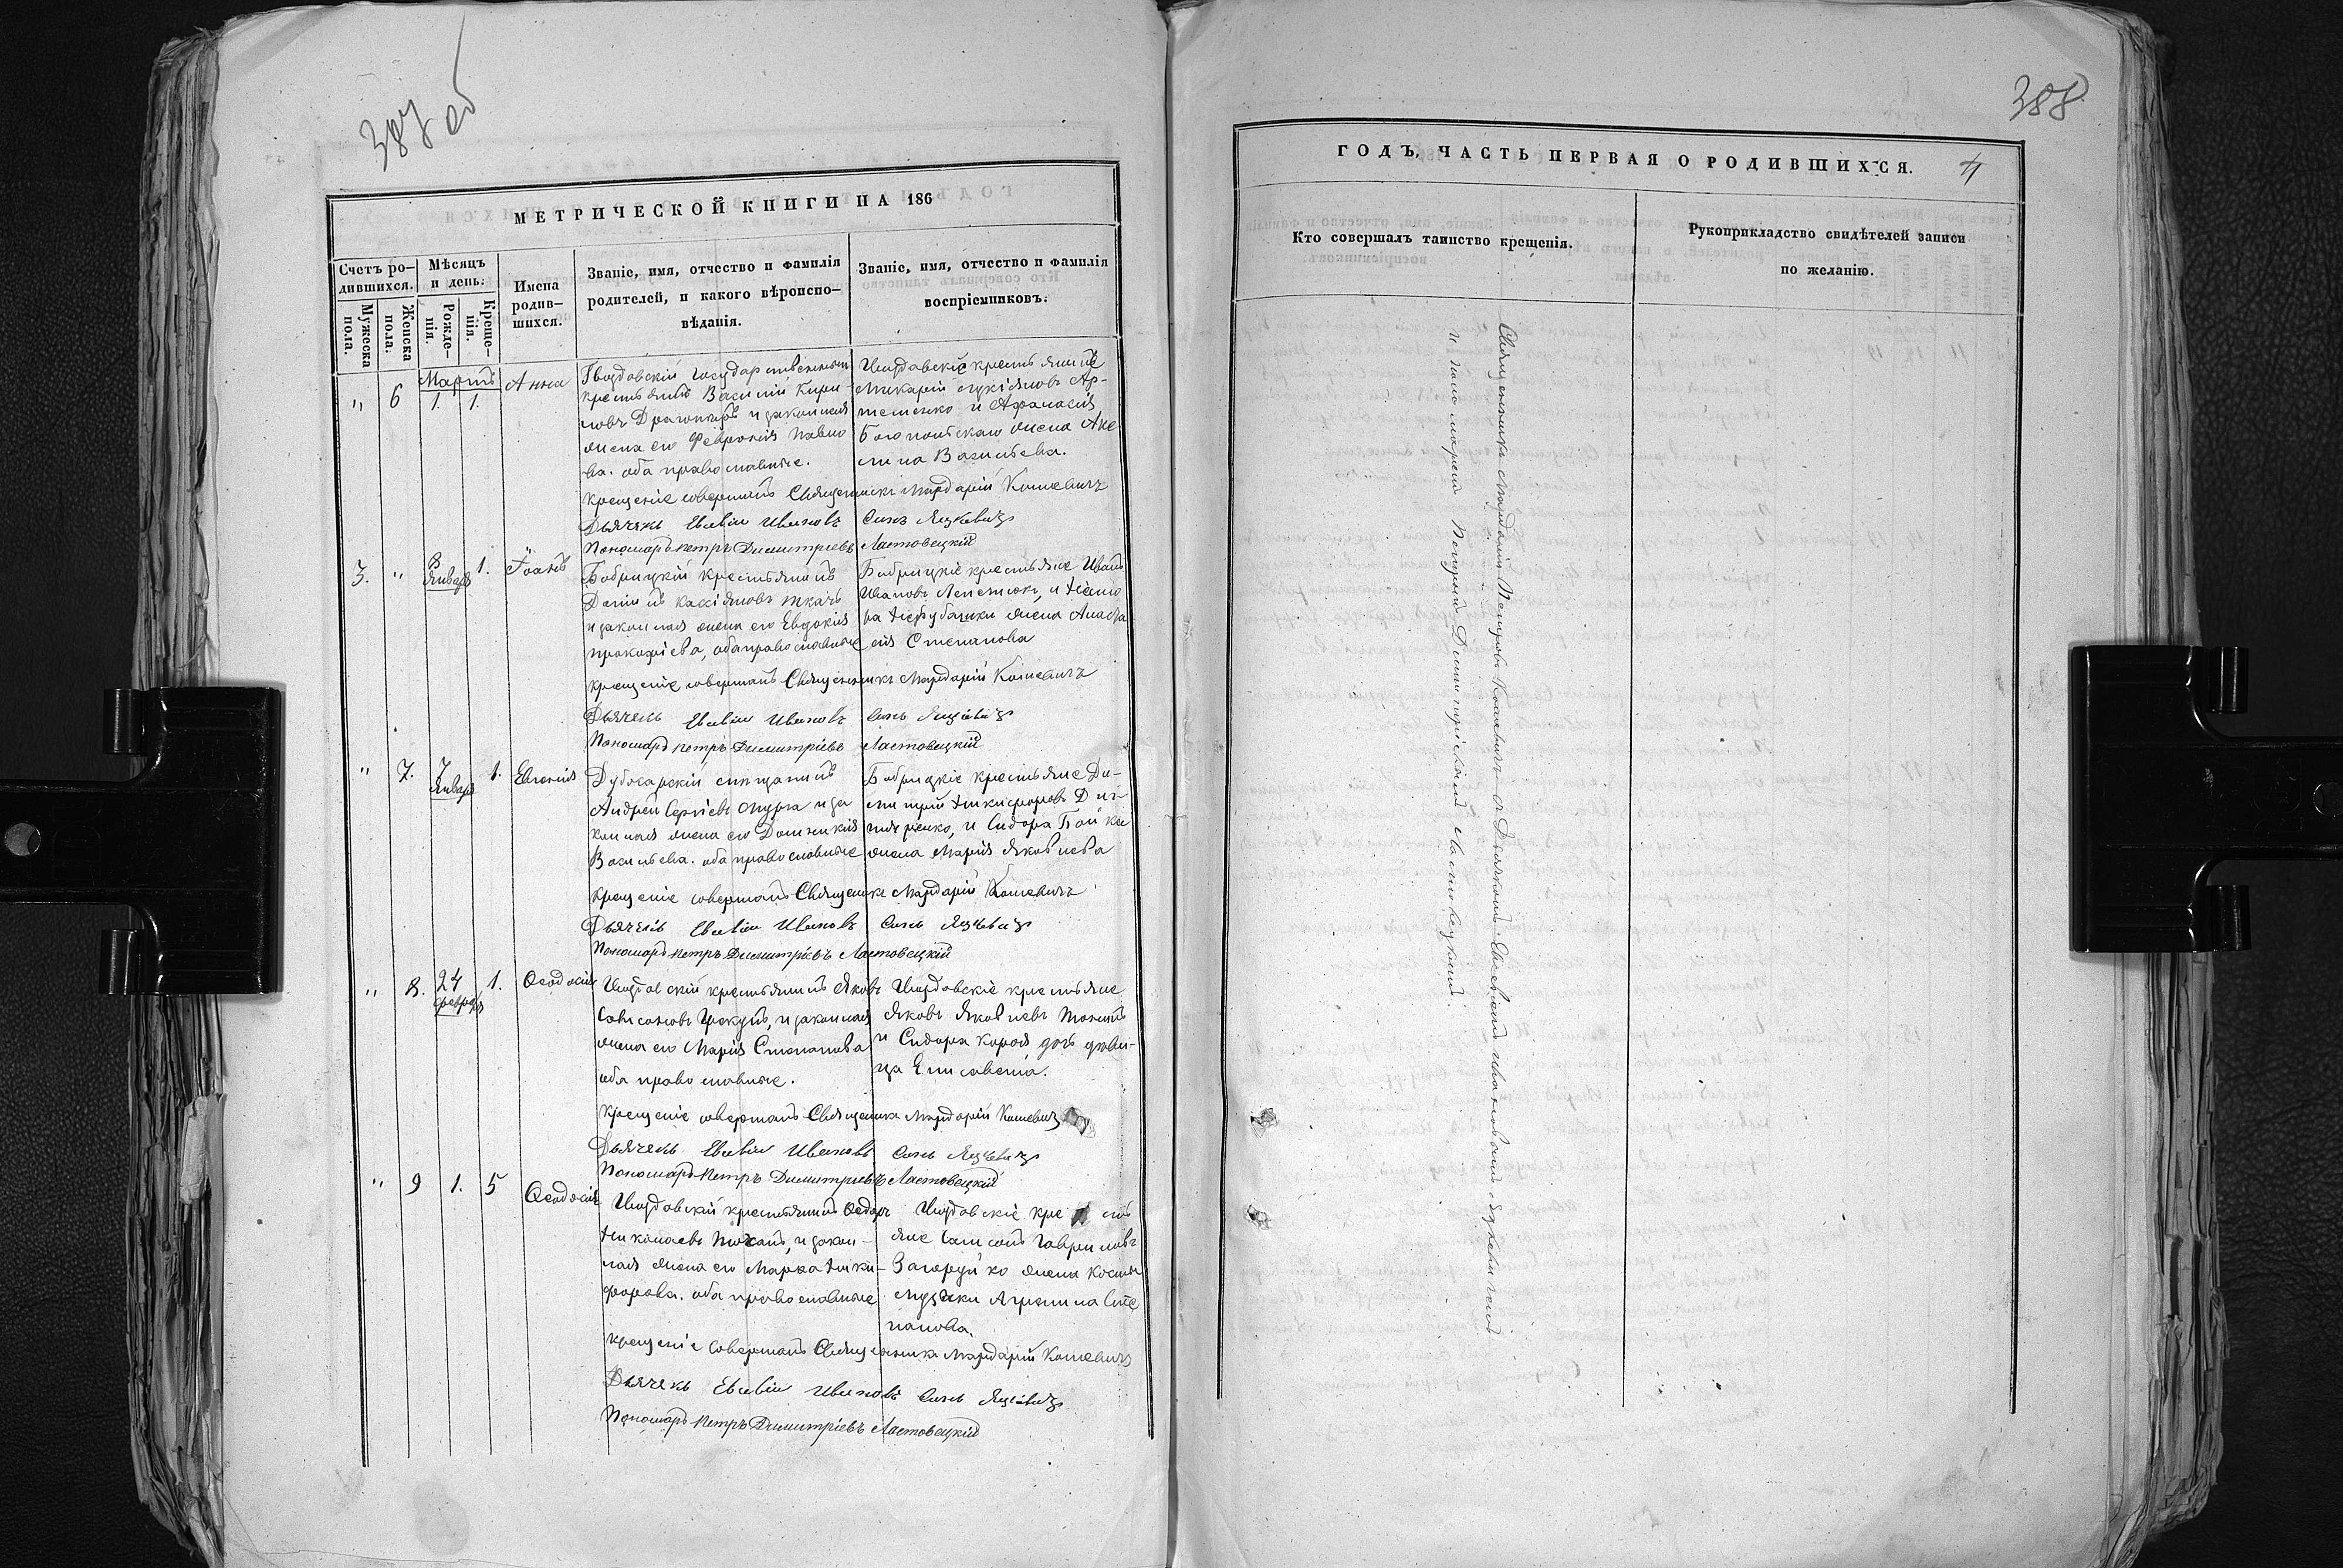 387 об
МЕТРИЧЕСКОЙ КНИГИ НА 186
Счетъ ро-
дившихся.
Мѣсяцъ
и день:
Мужеска
пола.
Женска
пола.
Рожде-
нія.
Креще-
нія.
Имена
родив-
шихся.
Званіе, имя, отчество и фамилія
родителей, и какого вѣроиспо-
вѣданія.
Званіе, имя, отчество и фамилія
воспріемниковъ:
Мартъ
" 6 1. 1.
Анна
Гвоздовскій государственный
крестьянинъ Василій Кири-
ловъ и законная
жена его Февронія Павло
ва. оба православные.
Гвоздовскіе крестьянинъ
Макарій Лукіяновъ Ар-
теменко и Афанасія
жена Аке
лина Васильева.
крещеніе совершалъ Священникъ Мардарій Кошевичъ
Дьячекъ Ивановъ Сынъ Яцкевичъ
Пономарь Петръ Димитріевъ Ластовецкій
3. " 8 Январь 1.
Іоаннъ
Бобрицкій крестьянинъ
Даніилъ Кассіяновъ Ткачъ
и законная жена его Евдокія
Прокофіева, оба православные
Бобрицкіе крестьяне Иванъ
Ивановъ и
жена Анаста
сія Степанова
крещеніе совершалъ Священникъ Мардарій Кошевичъ
Дьячекъ Ивановъ Сынъ Яцкевичъ
Пономарь Петръ Димитріевъ Ластовецкій
" 7. 7 Январь 1.
Евгенія
Андрей Сергіевъ и за
конная жена его Домникія
Васильева. оба православные
Бобрицкіе крестьяне Ди-
митрій Никифоровъ
и Сидора Бойка
жена Марія Яковлева
крещеніе совершалъ Священникъ Мардарій Кошевичъ
Дьячекъ Ивановъ Сынъ Яцкевичъ
Пономарь Петръ Димитріевъ Ластовецкій
" 8. 24 февраля 1.
Ѳеодосія
Гвоздовскій крестьянинъ Яковъ
и законная
жена его Марія Степанова
оба православные.
Гвоздовскіе крестьяне
Яковъ Яковлевъ
и Сидора Короля дочь дѣви-
ца Елисавета.
крещеніе совершалъ Священникъ Мардарій Кошевичъ
Дьячекъ Ивановъ Сынъ Яцкевичъ
Пономарь Петръ Димитріевъ Ластовецкій
" 9 1. 5
Ѳеодосія
Гвоздовскій крестьянинъ Ѳедоръ
Николаевъ и закон-
ная жена его Марѳа Ники-
форова. оба православные
Гвоздовскіе кре сть
яне Самсонъ Гавриловъ
Загоруйко жена
Музыки Агрипина Сте
панова.
крещеніе совершалъ Священникъ Мардарій Кошевичъ
Дьячекъ Ивановъ Сынъ Яцкевичъ
Пономарь Петръ Димитріевъ Ластовецкій
388
ГОДЪ, ЧАСТЬ ПЕРВАЯ О РОДИВШИХСЯ. 4
Кто совершалъ таинство крещенія.
Рукоприкладство свидѣтелей записи
по желанію.
Священникъ Мардарій Петровъ Кошевичъ съ Дьячкомъ Ивановымъ Яцкевичемъ
и пономаремъ Петромъ Димитріевымъ Ластовецкимъ.